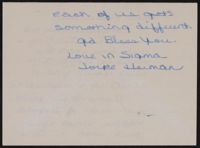 each of us gets
something different.
God Bless You.
Love in Sigma